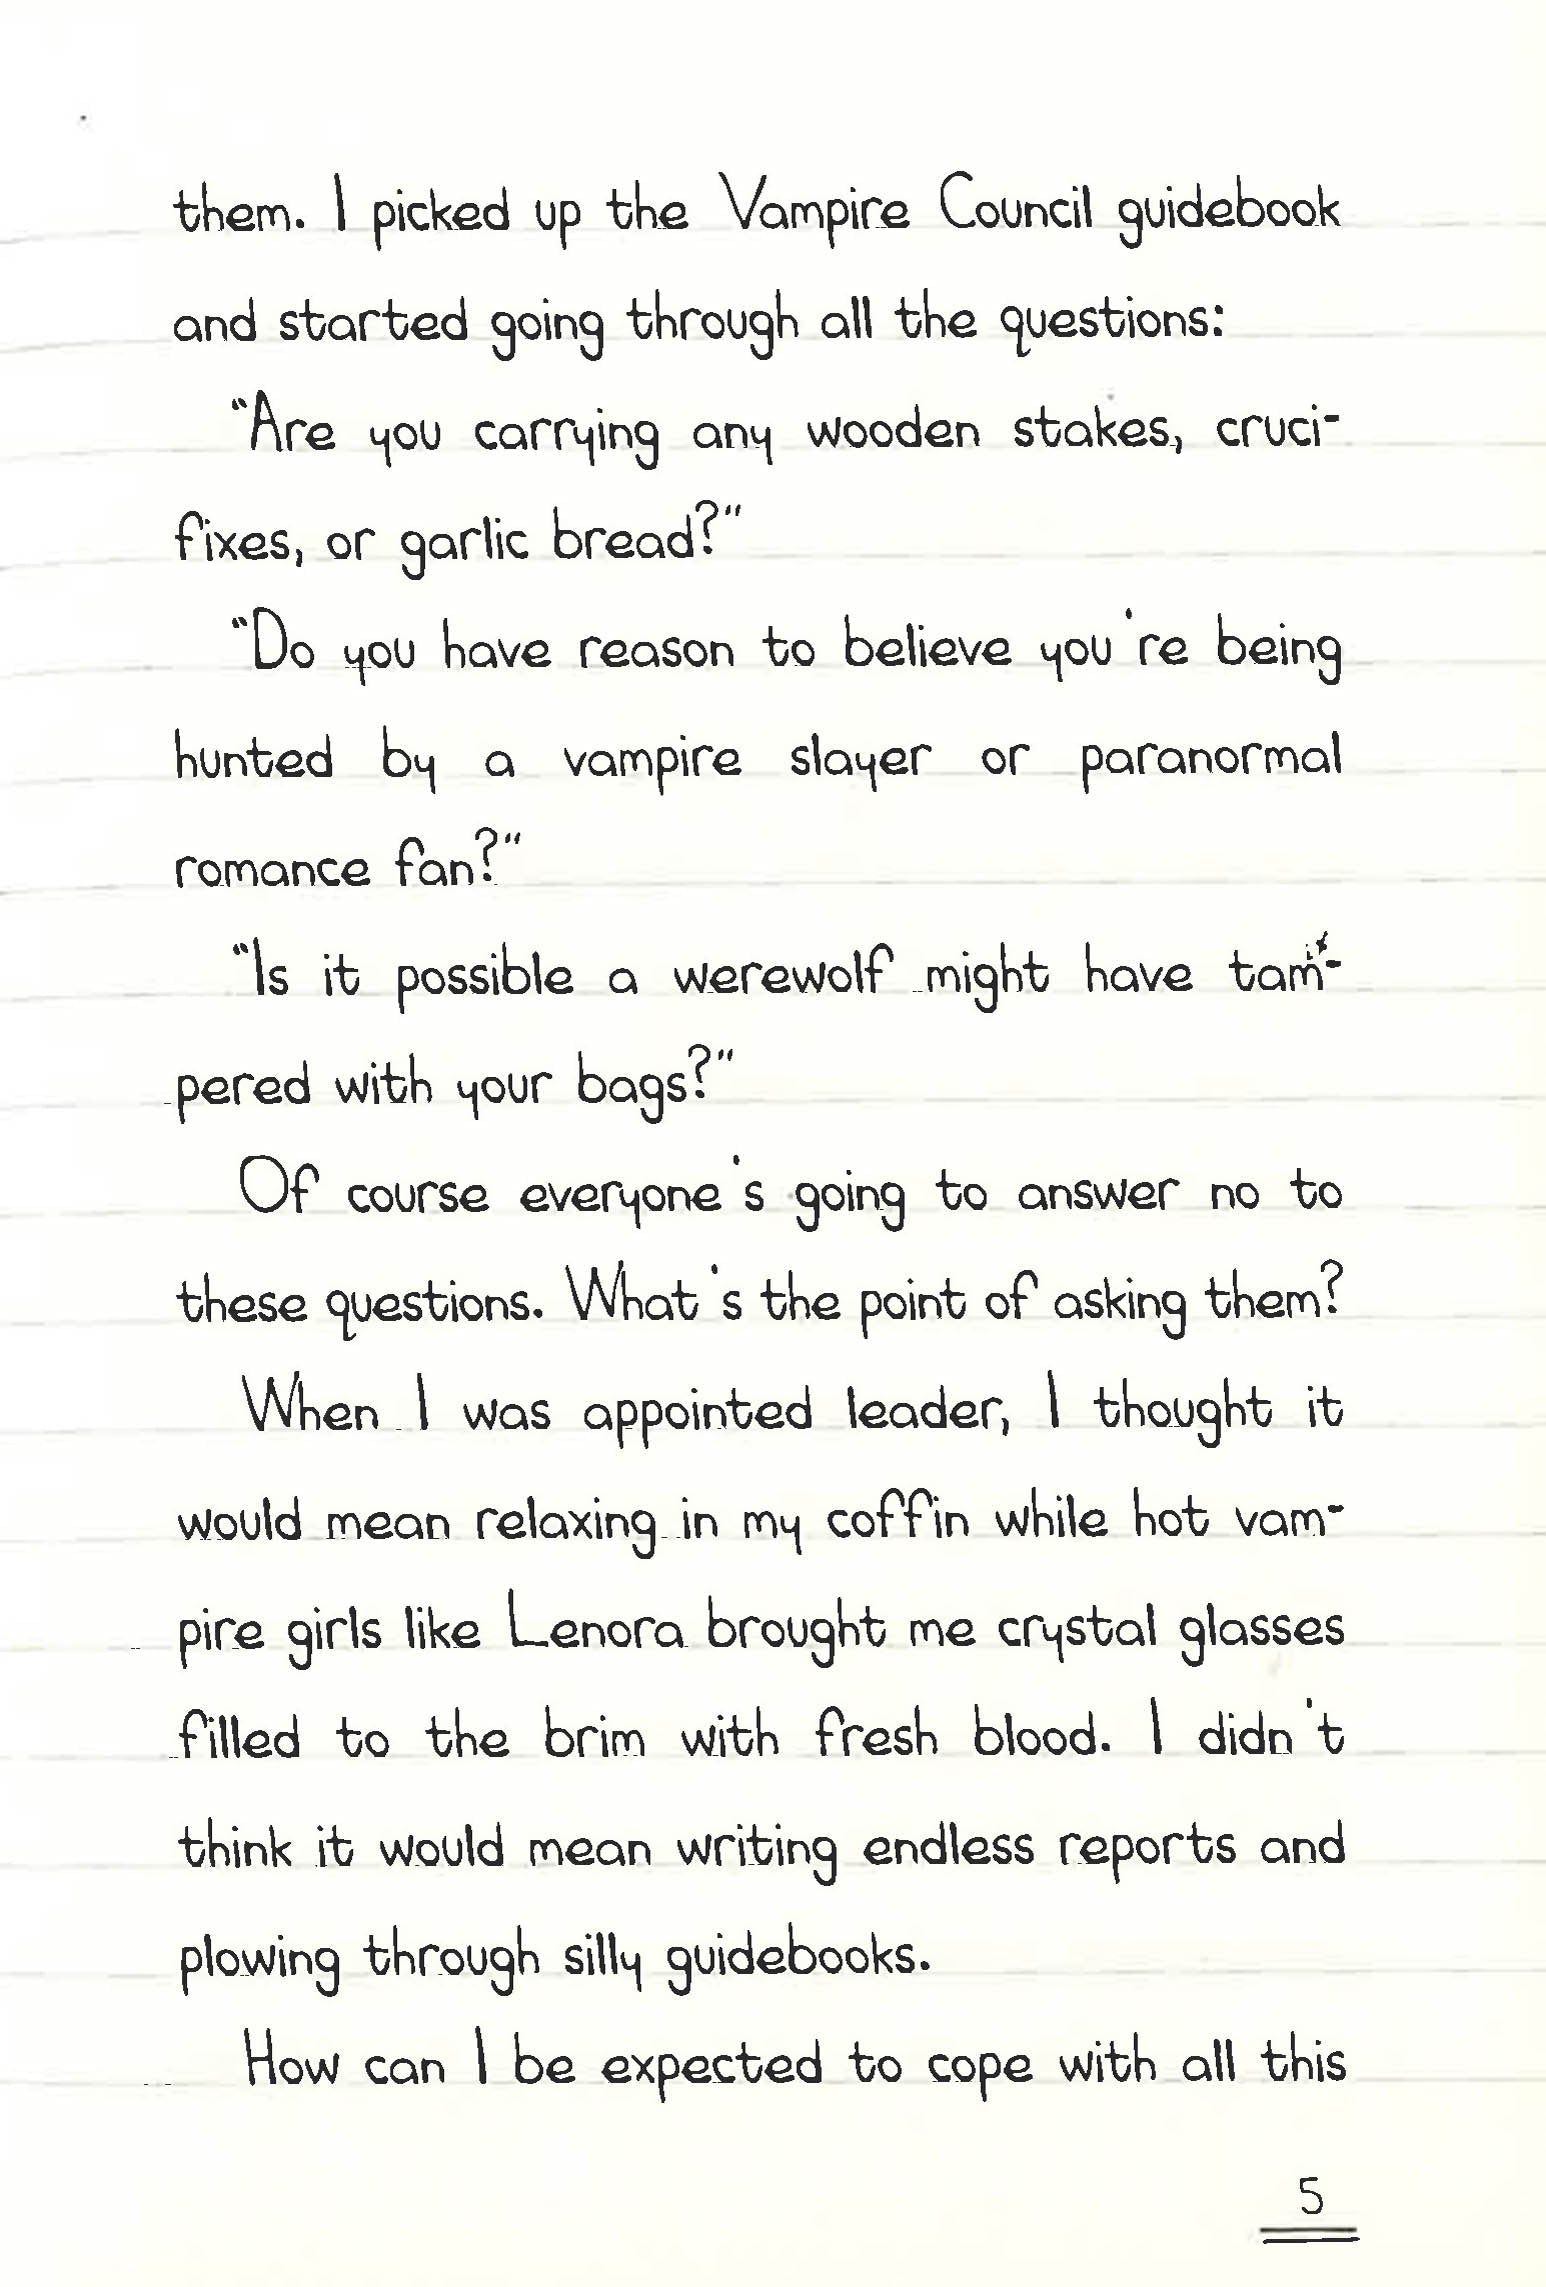 them. I picked up the Vampire Council guidebook
and started going through all the questions:
"Are you carrying any wooden stakes, cruci-
fixes, or garlic bread?"
"Do you have reason to believe you're being
hunted by a vampire slayer or paranormal
romance fan?"
"Is it possible a werewolf might have tam-
pered with your bags?"
Of course everyone's going to answer no to
these questions. What's the point of asking them?
When I was appointed leader, I thought it
would mean relaxing in my coffin while hot vam-
pire girls like Lenora brought me crystal glasses
filled to the brim with fresh blood. I didn't
think it would mean writing endless reports and
plowing through silly guidebooks.
How can I be expected to cope with all this
5